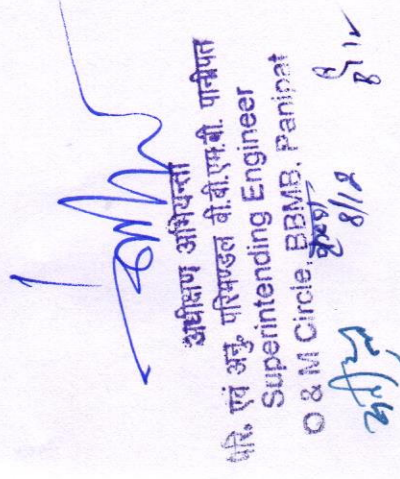 अधीक्षण अभियन्ता
परि. एवं अनु. परिमण्डल बी.बी.एम.बी. पानीपत
Superintending Engineer
O & M Circle, BBMB, Panipat
8/12